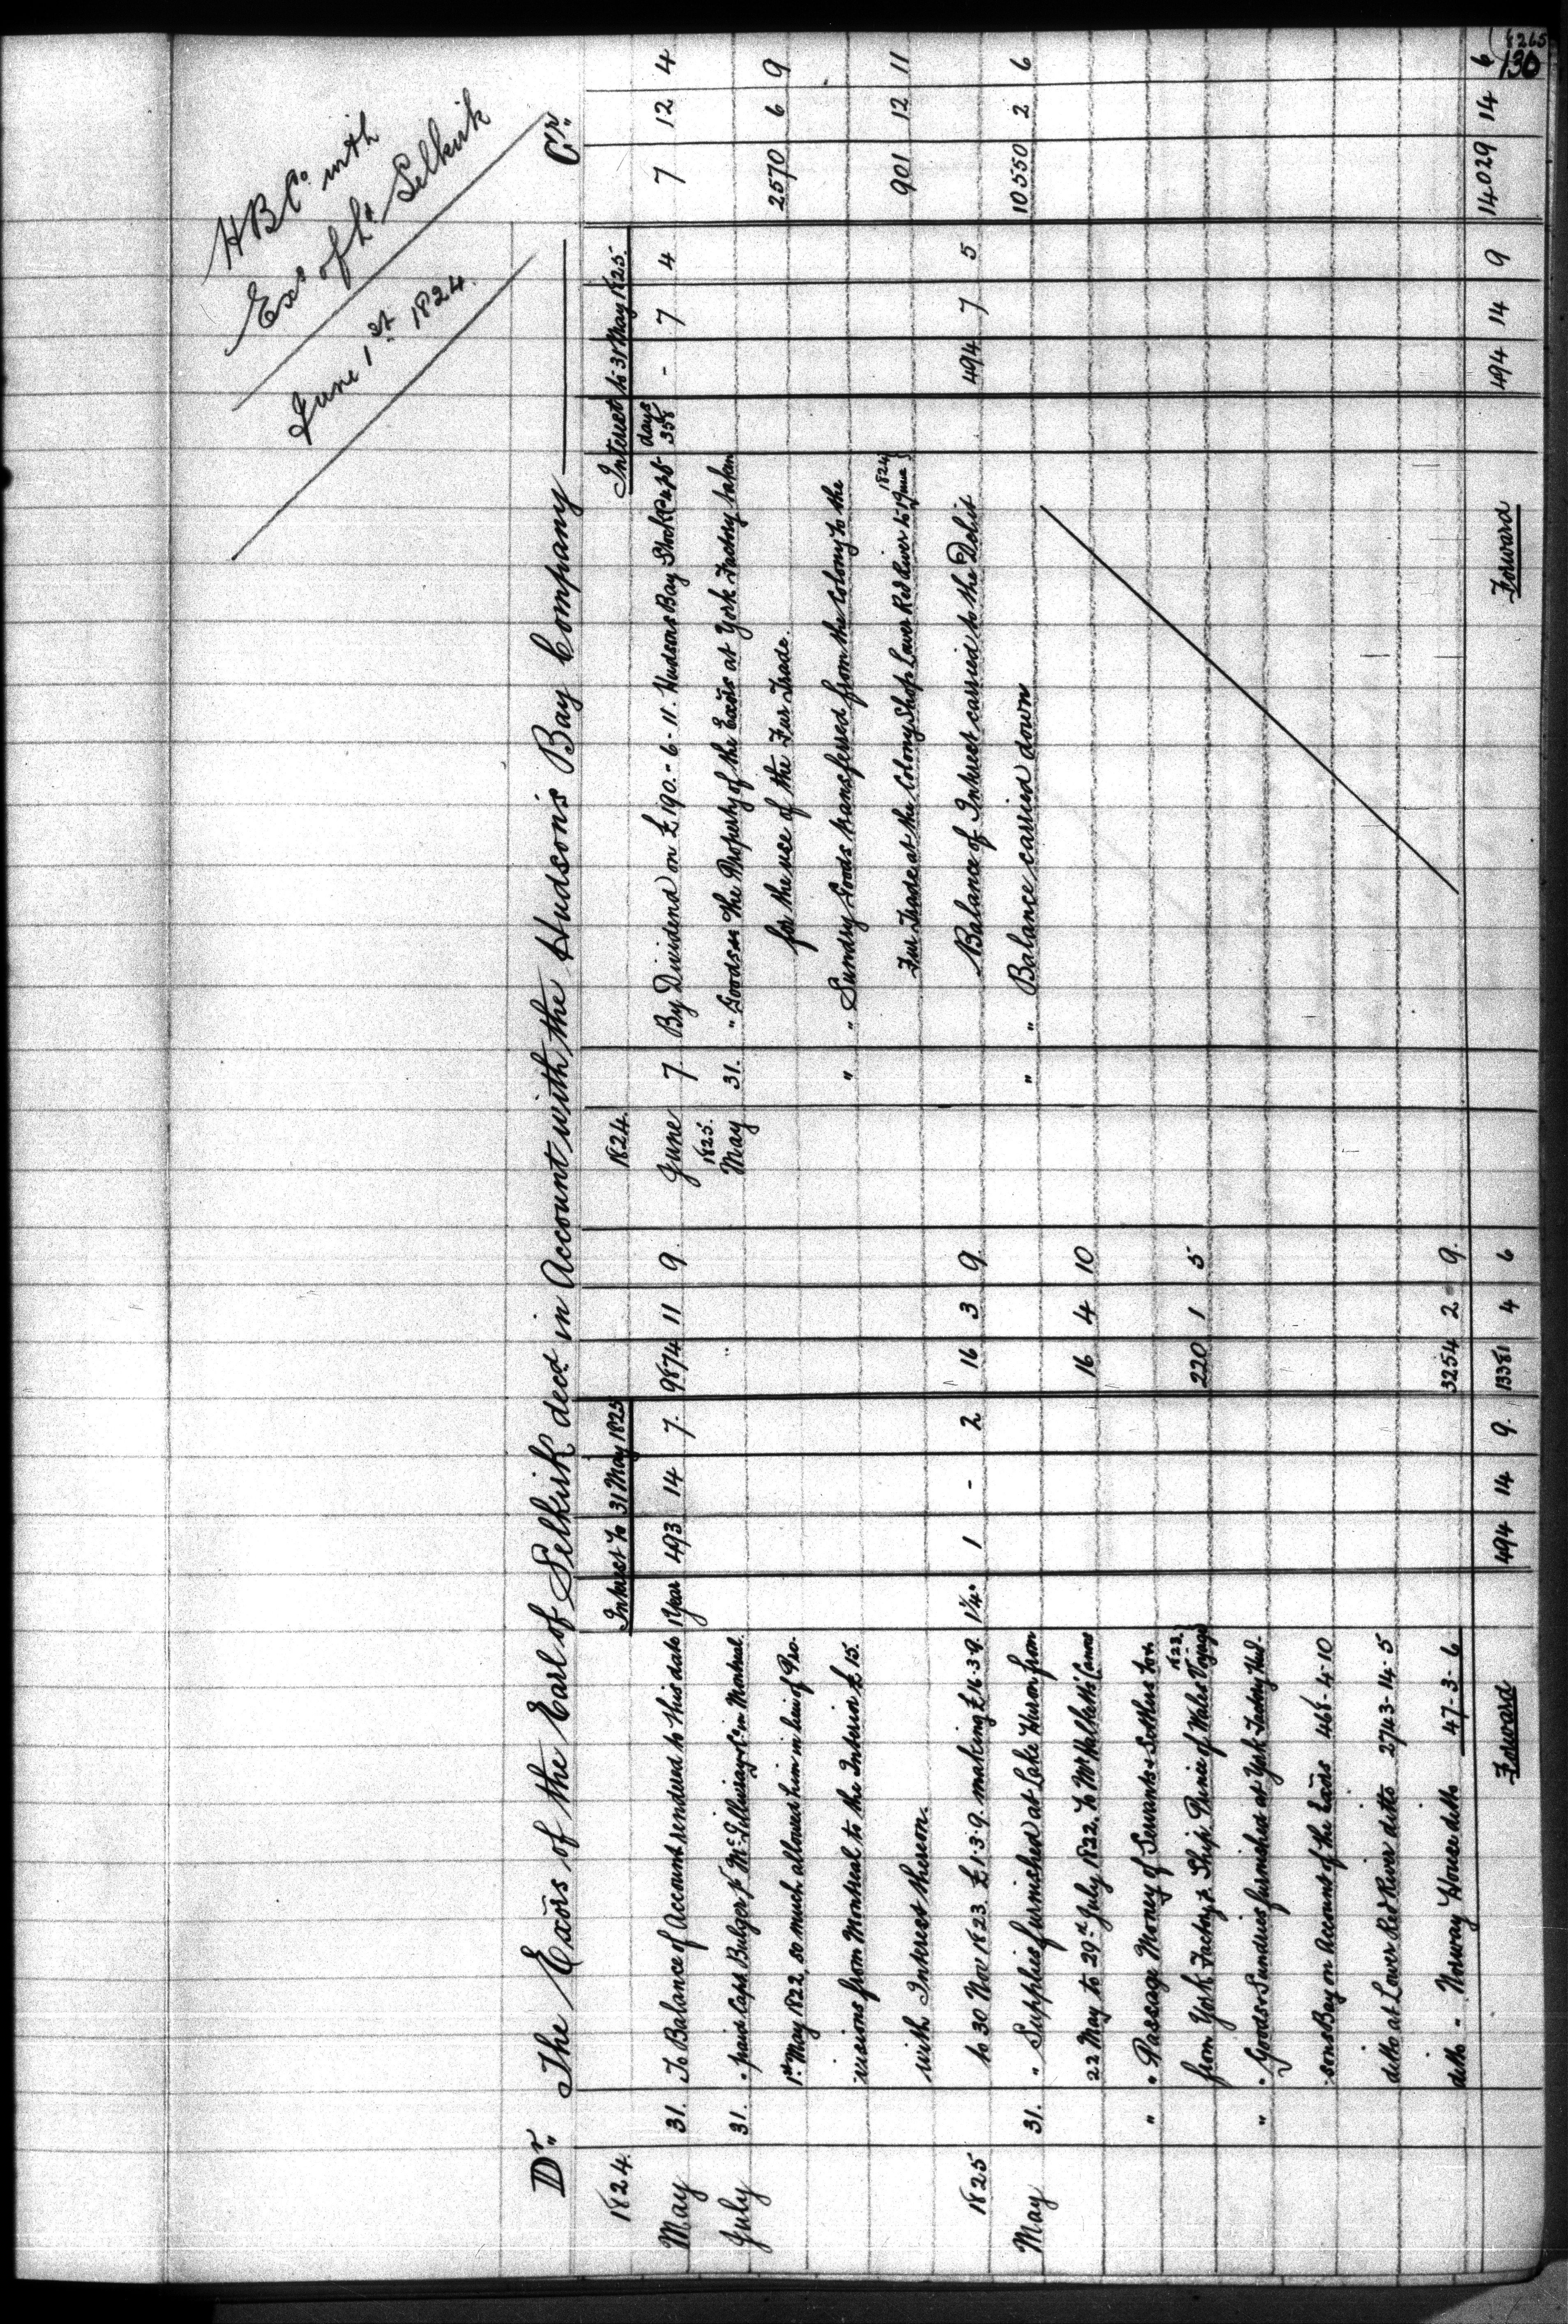 8265
130
HBCo. with
Exs of Ld Selkirk
June 1st 1824.
Dr. The Exors of the Earl of Selkirk decd. in Account with the Hudson's Bay Company Cr.
1824. Interest to 31 May 1825
May 31. To Balance of Account rendered to this date 1 Year 493 14 7. 9874 11 9.
July 31. " paid Capt Bulger pr McGillivrays Co in Montreal.
1st May 1822, so much allowed him in lieu of Pro-
visions from Montreal to the Interior £15.
with Interest thereon.
to 30 Nov 1823 £1.3.9. making £16.3.9. 1¼. 1 - 2 16 3 9.
1825
May 31. " Supplies furnished at Lake Huron from
22 May to 29th July 1822, to Mr Halkett's Canoe 16 4 10
" " Passage Money of Servants & Settlers
from York Factory pr Ship Prince of Wales Voyage 1823. 220 1 5
" " Goods & Sundries furnished at York Factory Hud-
sons Bay on Account of the Exors 468-4-10
ditto at Lower Red River ditto 2743-14-5
ditto - Norway House ditto 47-3-6 3254 2 9.
Forward 494 14 9. 13381 4 6
1824. Interest to 31 May 1825.
June 7 By Dividend on £190.-6-11. Hudsons Bay Stock days 358 - 7 4 7 12 4
1825.
May 31. " Goods the Property of the Exors at York Factory taken
for the use of the Fur Trade. 2570 6 9
" " Sundry Goods transferred from the Colony to the
Fur Trade at the Colony Shop Lower Red River to 1 June 1824 901 12 11
Balance of Interest carried to the Debit 494 7 5
" " Balance carried down 10550 2 6
Forward 494 14 9 14029 14 6